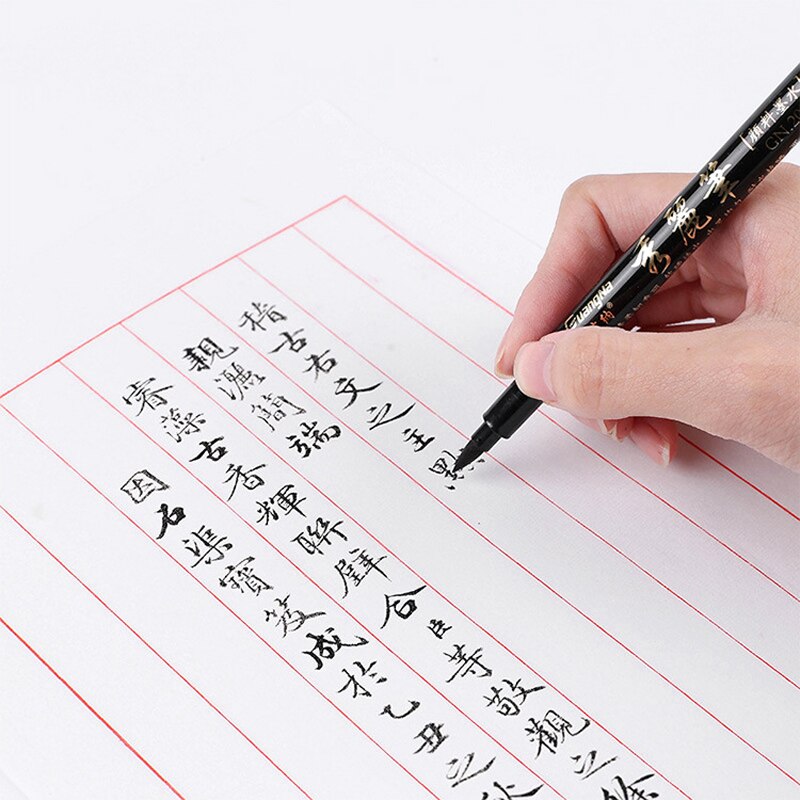 稽古右文之主
親灑簡端
睿藻古香輝聯璧合臣等敬觀之餘
因石渠寶笈成於乙丑之秋
Guangna
秀麗筆
顏料墨水